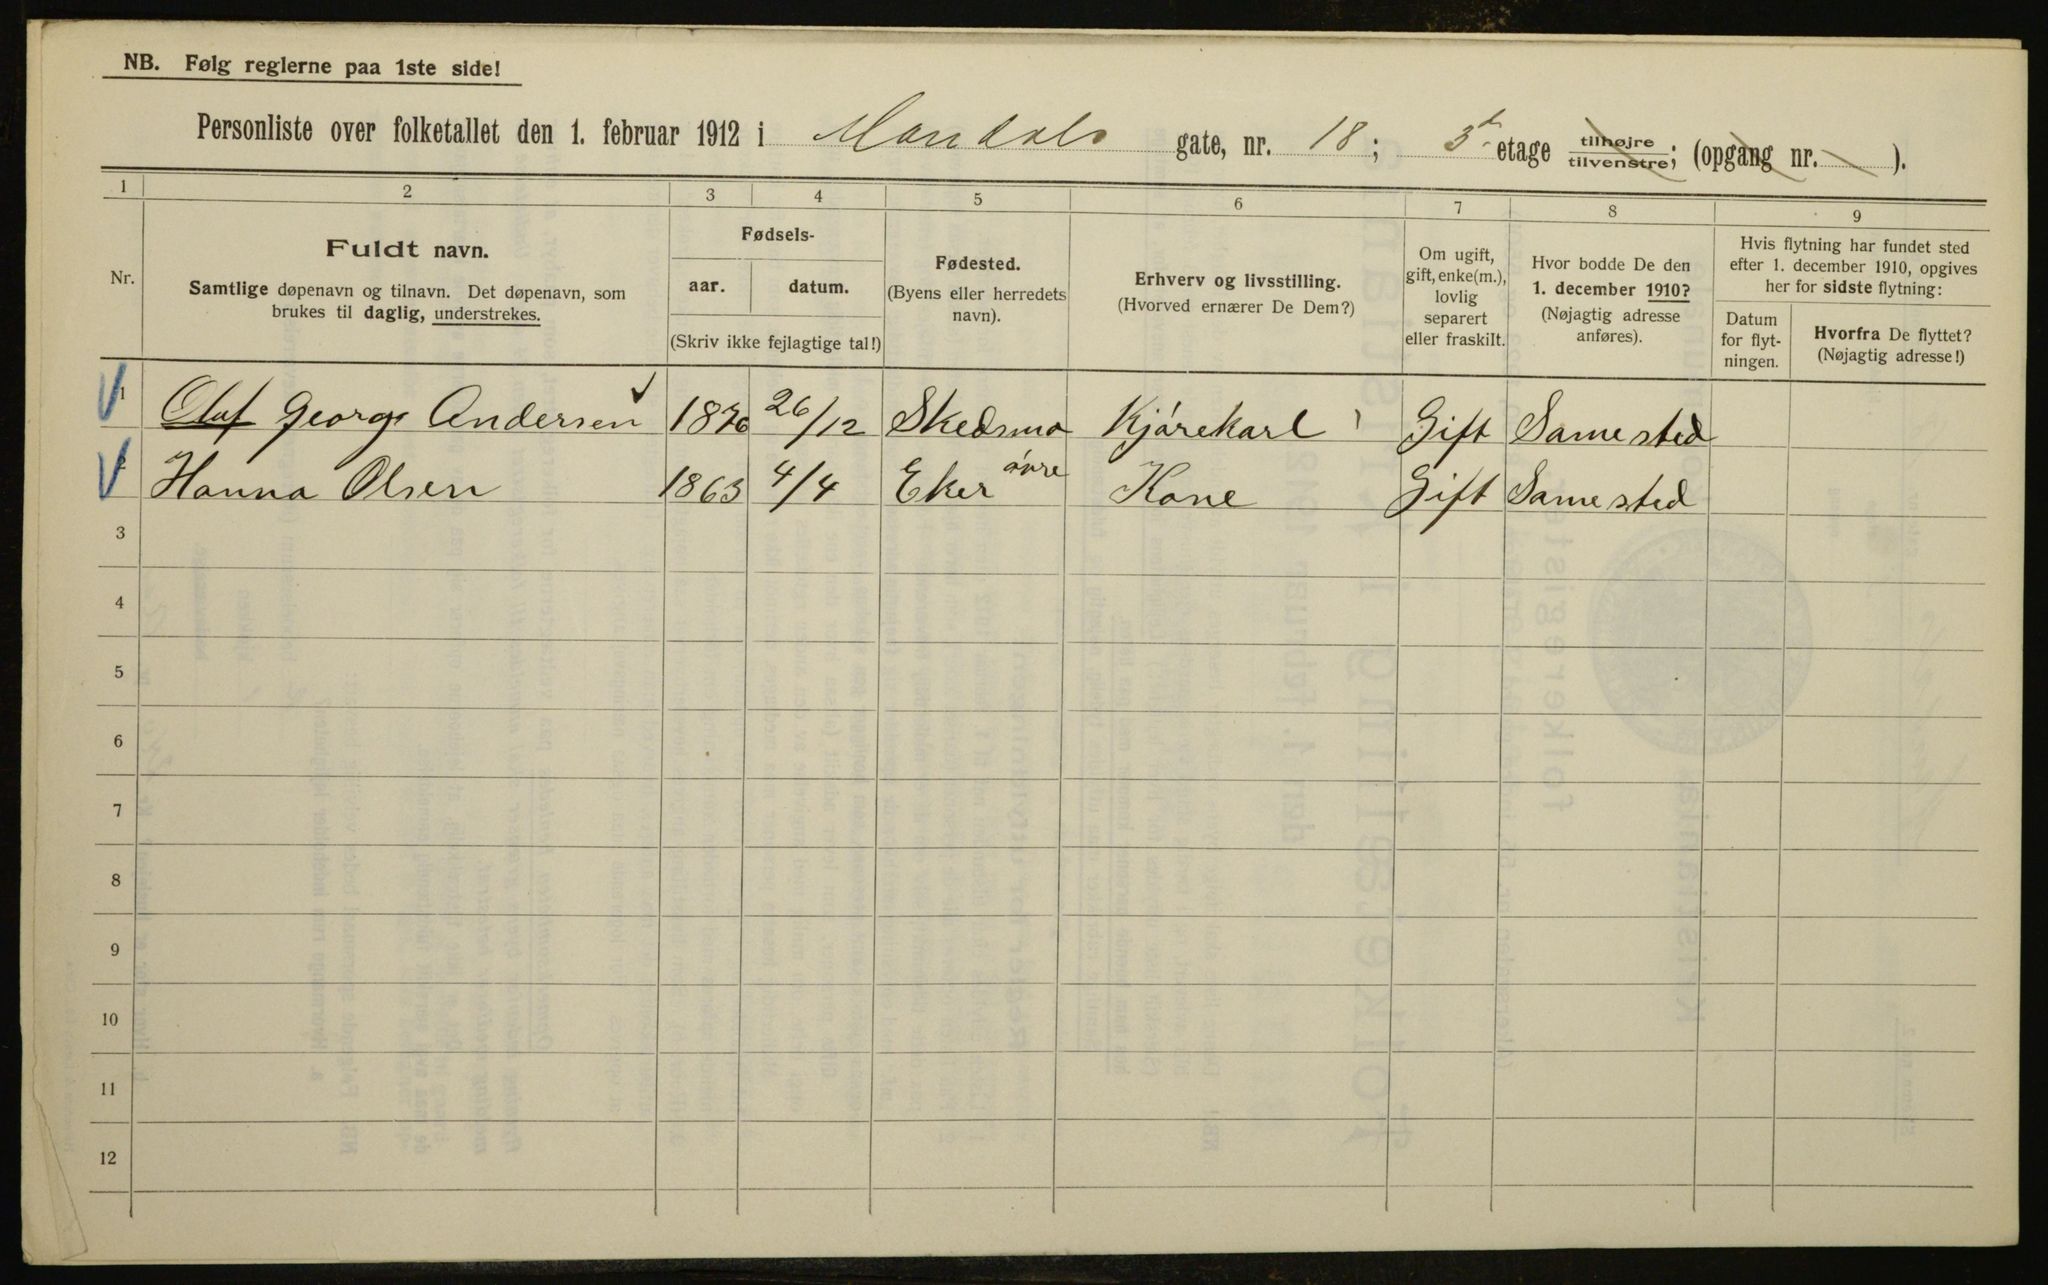 NB. Følg reglerne paa 1ste side!
Personliste over folketallet den 1. februar 1912 i Mandals gate, nr. 18; 3d etage tilhøjre tilvenstre; (opgang nr. ).
1 2 3 4 5 6 7 8 9
Nr.
Fuldt navn.
Samtlige døpenavn og tilnavn. Det døpenavn, som
brukes til daglig, understrekes.
Fødsels-
aar. datum.
(Skriv ikke fejlagtige tal!)
Fødested.
(Byens eller herredets
navn).
Erhverv og livsstilling.
(Hvorved ernærer De Dem?)
Om ugift,
gift, enke(m.),
lovlig
separert
eller fraskilt.
Hvor bodde De den
1. december 1910?
(Nøjagtig adresse
anføres).
Hvis flytning har fundet sted
efter 1. december 1910, opgives
her for sidste flytning:
Datum
for flyt-
ningen.
Hvorfra De flyttet?
(Nøjagtig adresse!)
1 Olaf Georg Andersen 1876 26/12 Skedsmo Kjørekarl Gift Samested
2 Hanna Olsen 1863 4/4 Eker øvre Kone Gift Samested
3
4
5
6
7
8
9
10
11
12